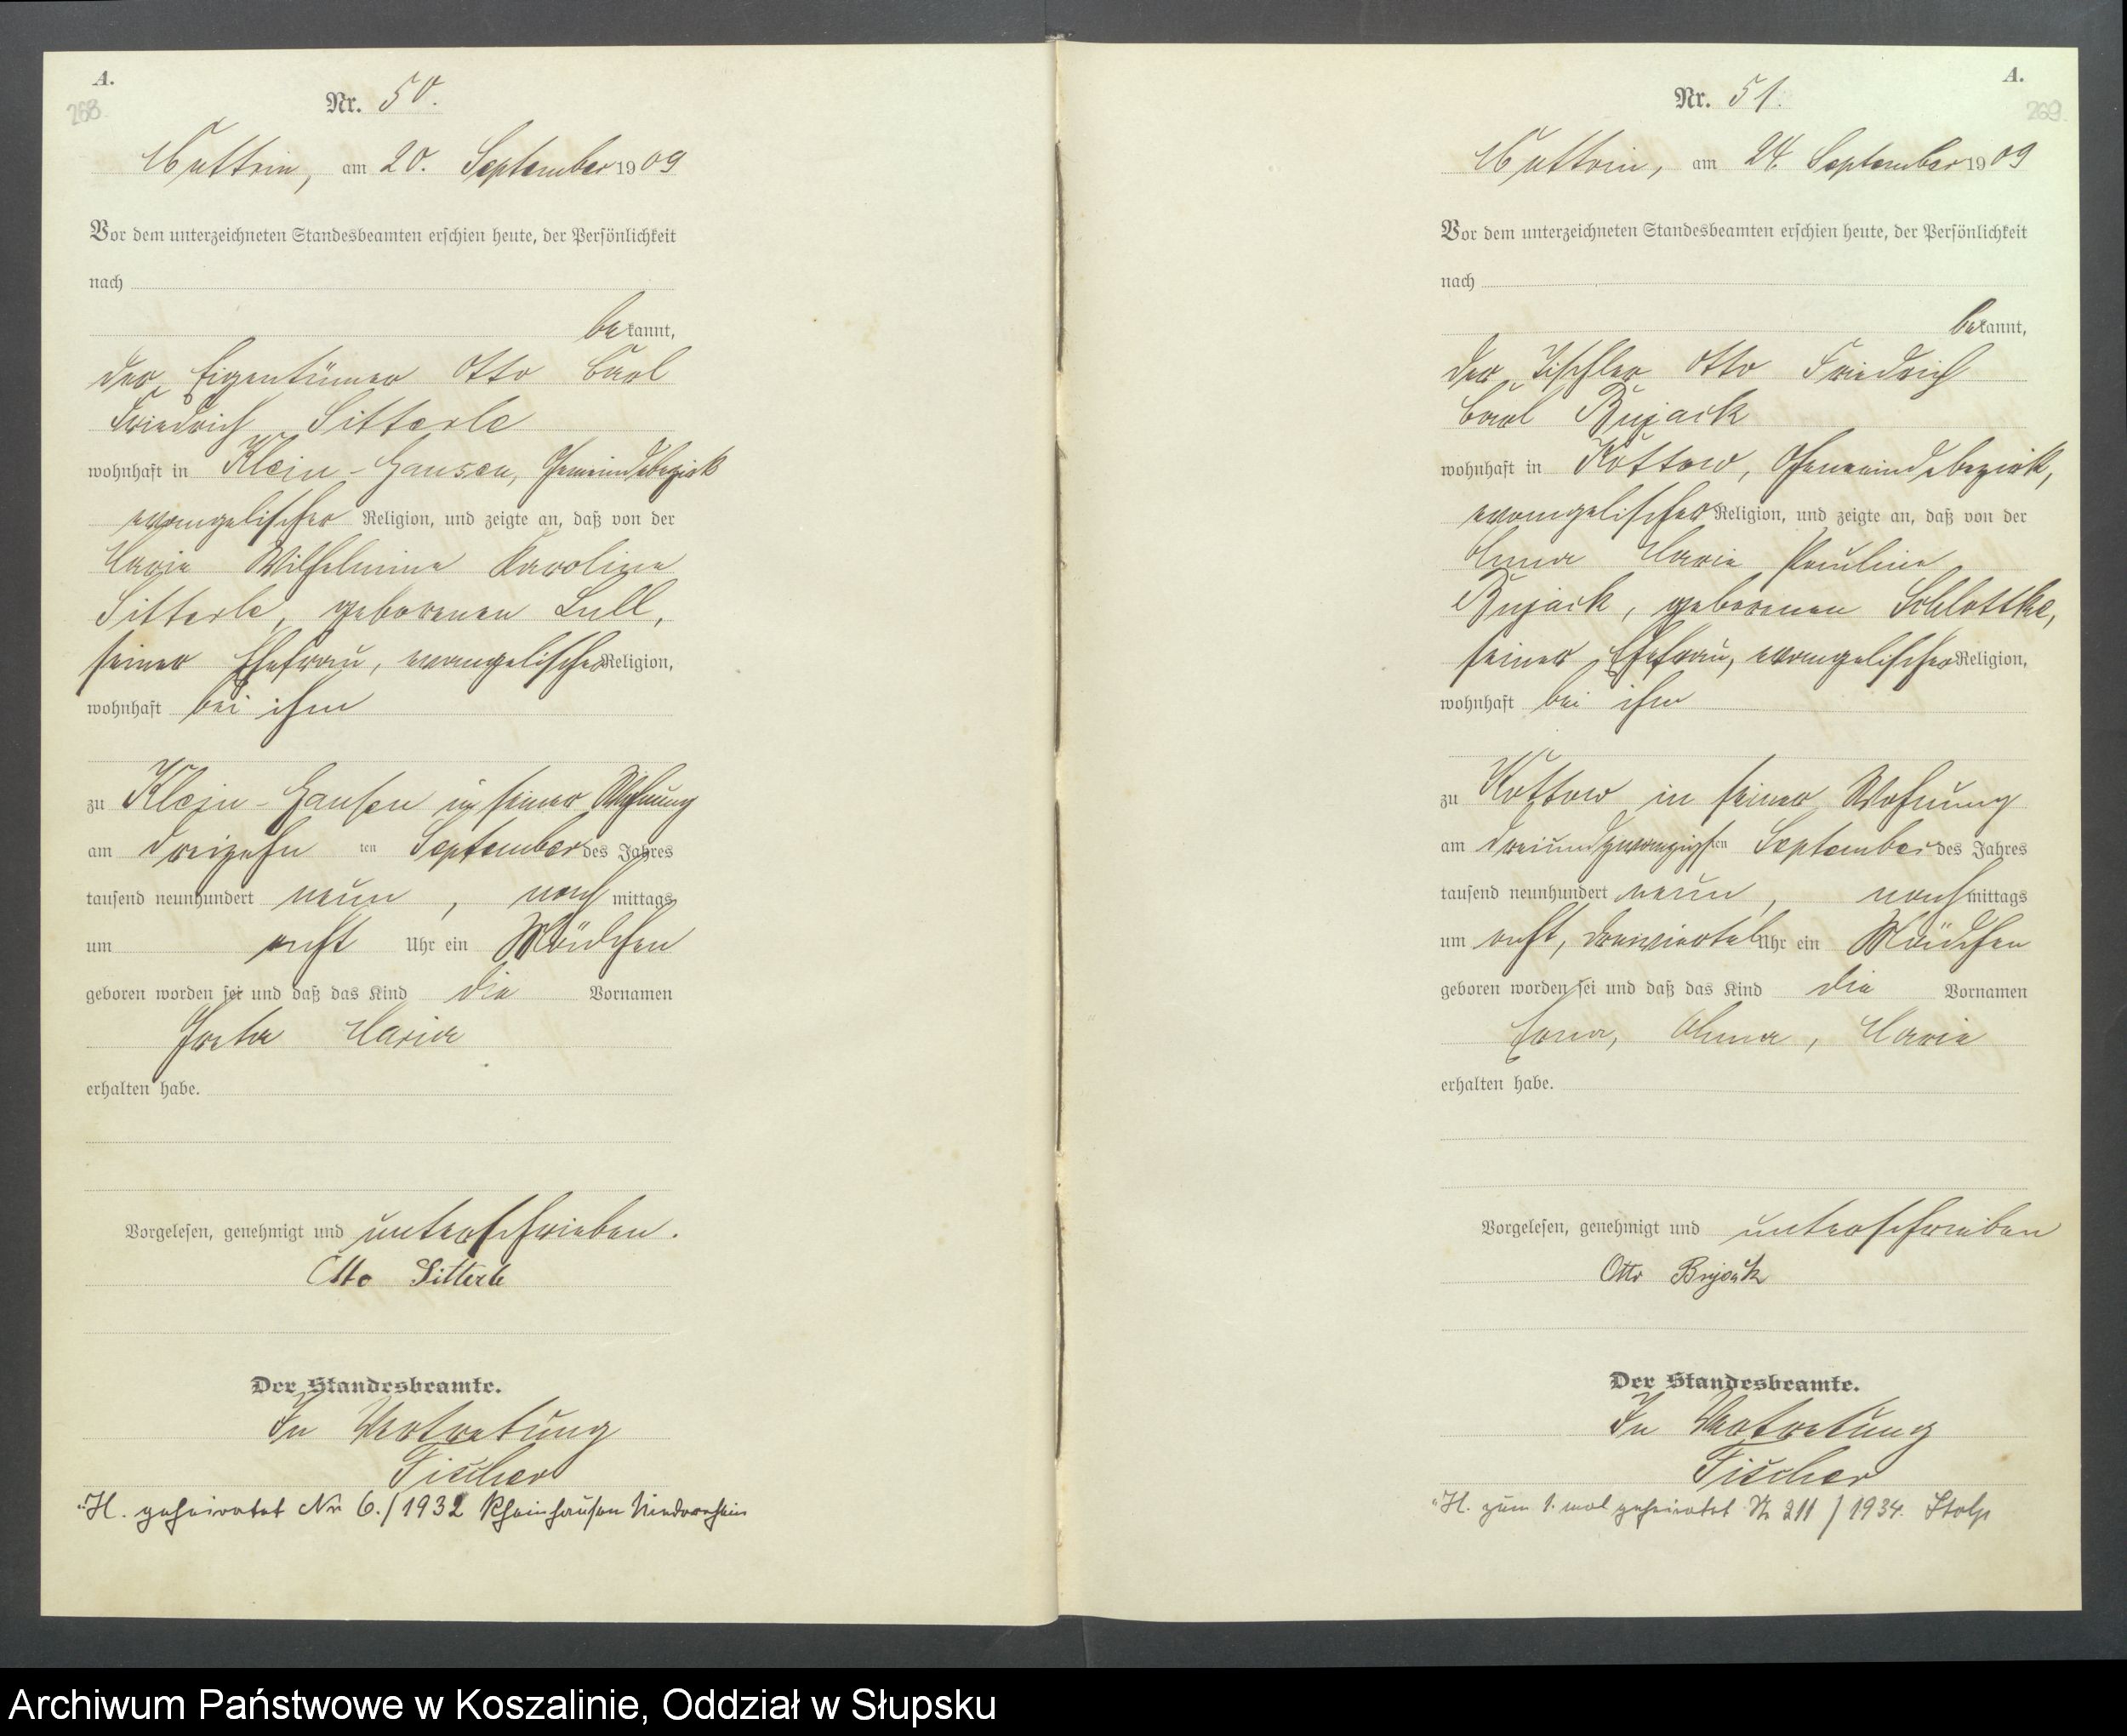 A.
268
Nr. 50.
Muttrin, am 20. September 1909
Vor dem unterzeichneten Standesbeamten erschien heute, der Persönlichkeit
nach
bekannt,
der Eigentümer Otto Carl
Friedrich Sitterle
wohnhaft in Klein-Gansen, Gemeindebezirk
evangelischer Religion, und zeigte an, daß von der
Marie Wilhelmine Karoline
Sitterle, geborenen Lull,
seiner Ehefrau, evangelischer Religion,
wohnhaft bei ihm
zu Klein-Gansen in seiner Wohnung
am dreizehn ten September des Jahres
tausend neunhundert neun, nachmittags
um acht Uhr ein Mädchen
geboren worden sei und daß das Kind die Vornamen
Greta Maria
erhalten habe.
Vorgelesen, genehmigt und unterschrieben.
Otto Sitterle
Der Standesbeamte.
In Vertretung
Fischer
"H. geheiratet Nr 6./1932 Rheinhausen Niederrhein
A.
269
Nr. 51.
Muttrin, am 24. September 1909
Vor dem unterzeichneten Standesbeamten erschien heute, der Persönlichkeit
nach
bekannt,
der Tischler Otto Friedrich
Carl Bujack
wohnhaft in Kottow, Gemeindebezirk,
evangelischer Religion, und zeigte an, daß von der
Anna Marie Pauline
Bujack, geborenen Schlottke,
seiner Ehefrau, evangelischer Religion,
wohnhaft bei ihm
zu Kottow in seiner Wohnung
am dreiundzwanzigsten September des Jahres
tausend neunhundert neun, nachmittags
um acht, dreiviertel Uhr ein Mädchen
geboren worden sei und daß das Kind die Vornamen
Erna, Anna, Marie
erhalten habe.
Vorgelesen, genehmigt und unterschrieben
Otto Bujack
Der Standesbeamte.
In Vertretung
Fischer
"H. zum 1. mal geheiratet Nr 211/1934. Stolp
Archiwum Państwowe w Koszalinie, Oddział w Słupsku